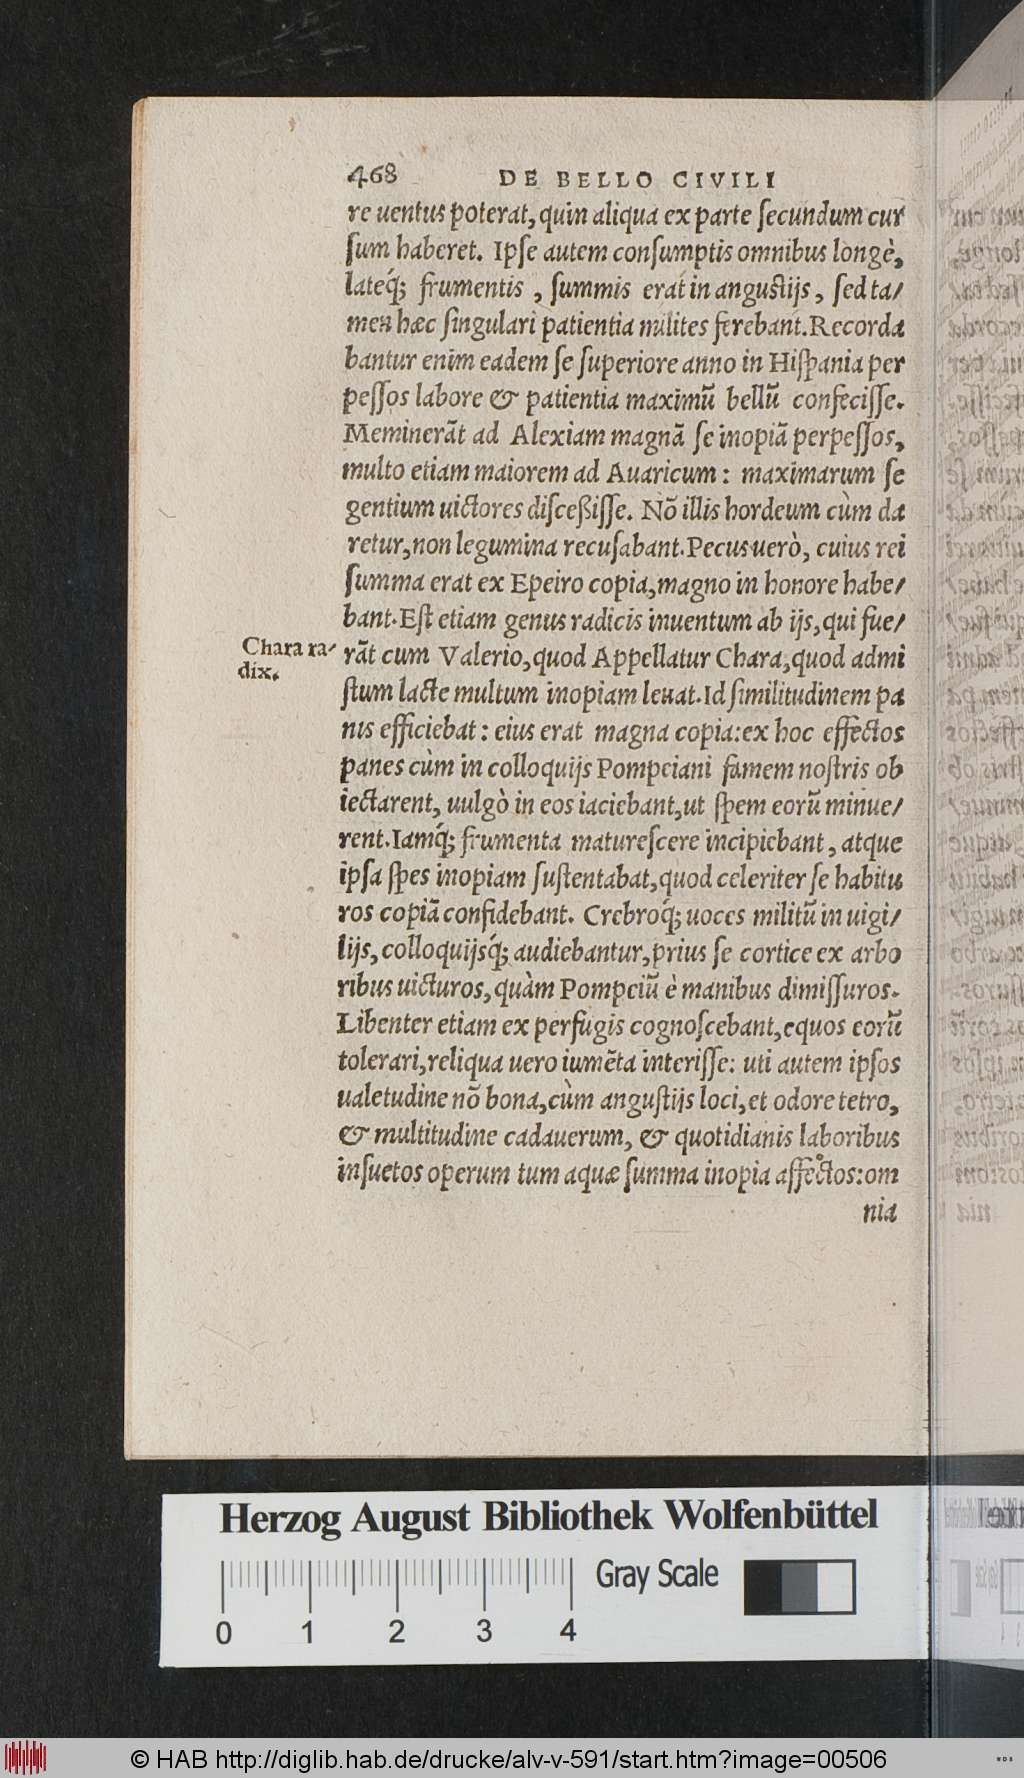 468 DE BELLO CIVILI
re uentus poterat, quin aliqua ex parte ſecundum cur
ſum haberet. Ipſe autem conſumptis omnibus longè,
lateq́; frumentis, ſummis erat in anguſtijs, ſed ta/
men hæc ſingulari patientia milites ferebant. Recorda
bantur enim eadem ſe ſuperiore anno in Hiſpania per
peſſos labore & patientia maximũ bellũ confeciſſe.
Meminerãt ad Alexiam magnã ſe inopiã perpeſſos,
multo etiam maiorem ad Auaricum: maximarum ſe
gentium uictores diſceßiſſe. Nõ illis hordeum cùm da
retur, non legumina recuſabant. Pecus uerò, cuius rei
ſumma erat ex Epeiro copia, magno in honore habe/
bant. Eſt etiam genus radicis inuentum ab ijs, qui fue/
Chara ra/
dix.
rãt cum Valerio, quod Appellatur Chara, quod admi
ſtum lacte multum inopiam leuat. Id ſimilitudinem pa
nis efficiebat: eius erat magna copia: ex hoc effectos
panes cùm in colloquijs Pompeiani famem noſtris ob
iectarent, uulgò in eos iaciebant, ut ſpem eorũ minue/
rent. Iamq́; frumenta matureſcere incipiebant, atque
ipſa ſpes inopiam ſuſtentabat, quod celeriter ſe habitu
ros copiã confidebant. Crebroq́; uoces militũ in uigi/
lijs, colloquijsq́; audiebantur, prius ſe cortice ex arbo
ribus uicturos, quàm Pompeiũ è manibus dimiſſuros.
Libenter etiam ex perfugis cognoſcebant, equos eorũ
tolerari, reliqua uero iumẽta interiſſe: uti autem ipſos
ualetudine nõ bona, cùm anguſtijs loci, et odore tetro,
& multitudine cadauerum, & quotidianis laboribus
inſuetos operum tum aquæ ſumma inopia affectos: om
nia
Herzog August Bibliothek Wolfenbüttel
Gray Scale
0 1 2 3 4
© HAB http://diglib.hab.de/drucke/alv-v-591/start.htm?image=00506